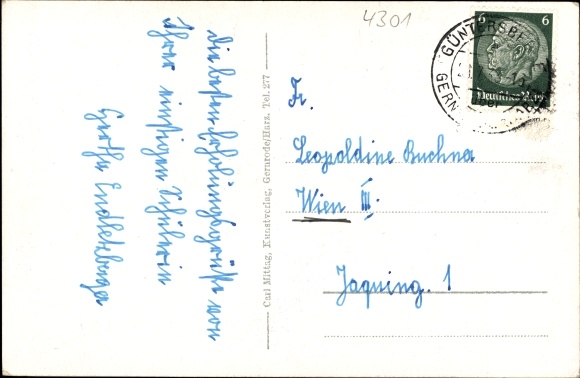 4301
Die besten Erholungsgrüße von
Ihrer einstigen Schülerin
Gertha
Carl Mittag, Kunstverlag, Gernrode/Harz. Tel. 277
GÜNTERSBE
GERN
6 6
Deutsches Reich
Fr.
Leopoldine Buchna
Wien III.
Jaquing. 1